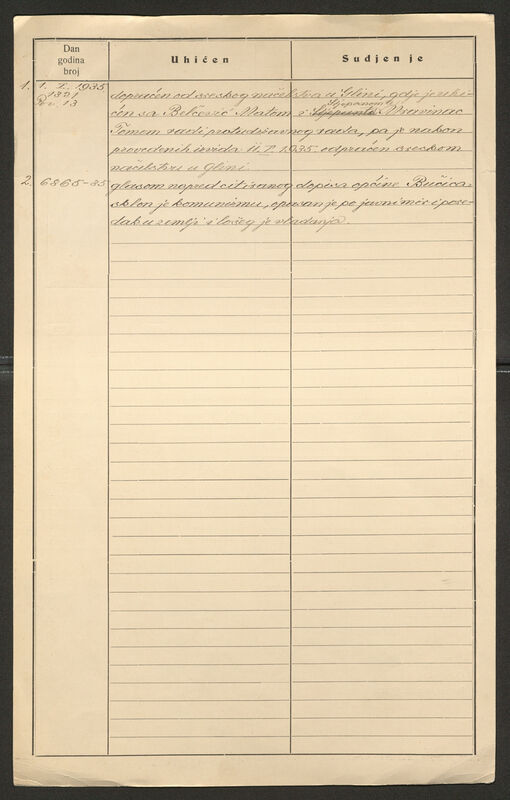 Dan
godina
broj
Uhićen
Sudjenje
1. 1. I. 1935
1321
Pov. 13
dopraćen od sreskog načelstva u Glini, gdje je uhi-
Stjepanom i
ćen sa Matom i Mravinac
Tomom radi protudržavnog rada, pa je nakon
provedenih izvida 11. I. 1935 odpraćen sreskom
načelstvu u Glini.
2. 6865-35
glasom napred citiranog dopisa općine Bučica
sklon je komunizmu, opasan je po javni mir i pore-
dak u zemlji i lošeg je vladanja.